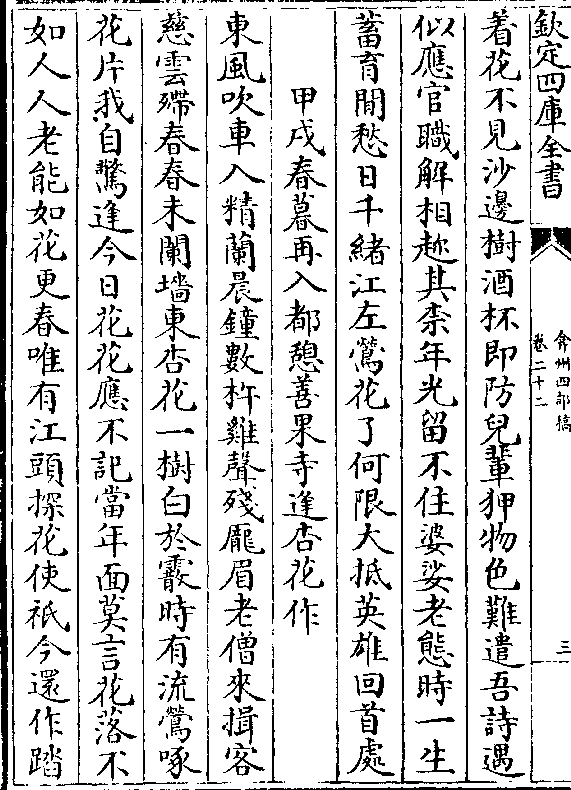 欽定四庫全書
弇州四部稿
卷二十二
三
着花不見沙邊樹酒杯即防兒輩狎物色難遣吾詩遇
似應官職解相趂其柰年光留不住婆娑老態時一生
蓄育閒愁日千緒江左鶯花了何限大抵英雄回首處
甲戌春暮再入都憩善果寺逢杏花作
東風吹車入精蘭晨鐘數杵雞聲殘龎眉老僧來揖客
慈雲殢春春未闌墻東杏花一樹白於霰時有流鶯啄
花片我自驚逢今日花花應不記當年面莫言花落不
如人人老能如花更春唯有江頭探花使祇今還作踏